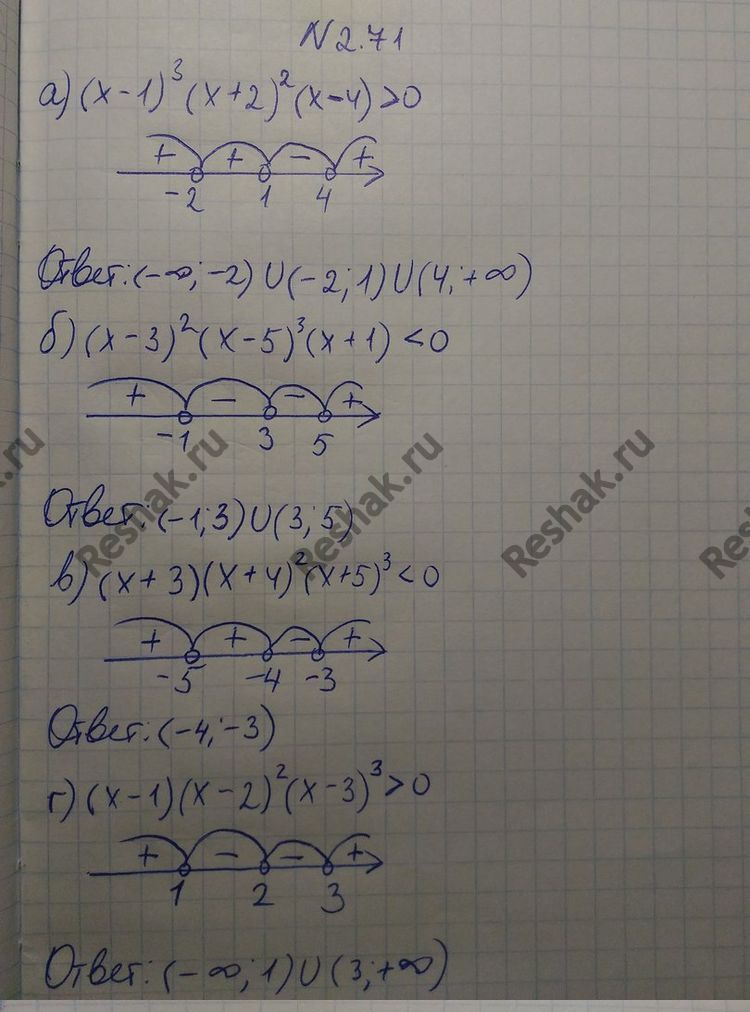 N 2.71
а) (x-1)³(x+2)²(x-4)>0
+ + - +
-2 1 4
Ответ: (-∞; -2) U (-2; 1) U (4; +∞)
б) (x-3)²(x-5)³(x+1) <0
+ - - +
-1 3 5
Ответ: (-1; 3) U (3; 5)
Reshak.ru Reshak.ru Reshak.ru
в) (x+3)(x+4)²(x+5)³<0
+ + - +
-5 -4 -3
Ответ: (-4; -3)
г) (x-1)(x-2)²(x-3)³>0
+ - - +
1 2 3
Ответ: (-∞; 1) U (3; +∞)